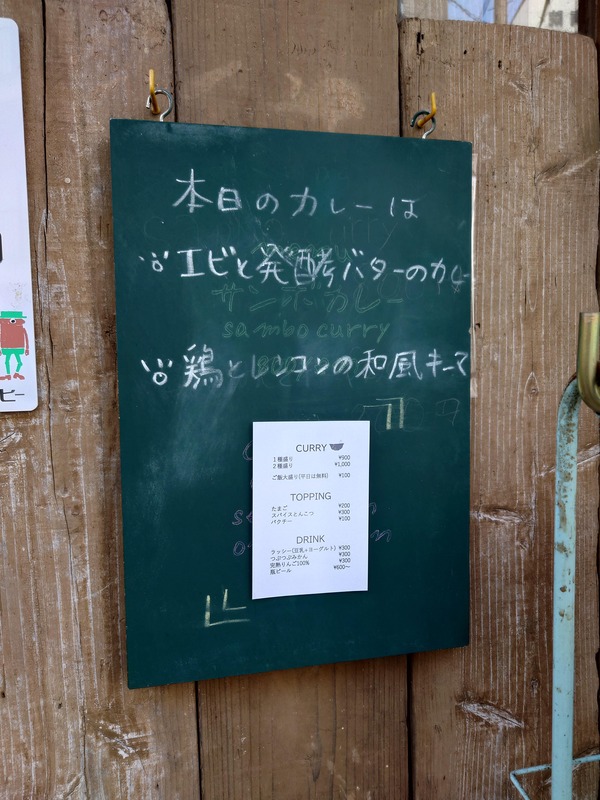 本日のカレーは
エビと発酵バターのカレー
サンボカレー
sambo curry
鶏とレンコンの和風キーマ
CURRY
1種盛り ¥900
2種盛り ¥1,000
ご飯大盛り(平日は無料) ¥100
TOPPING
たまご ¥200
スパイスとんこつ ¥300
パクチー ¥100
DRINK
ラッシー(豆乳+ヨーグルト) ¥300
つぶつぶみかん ¥300
完熟りんご100% ¥300
瓶ビール ¥600～
ビー